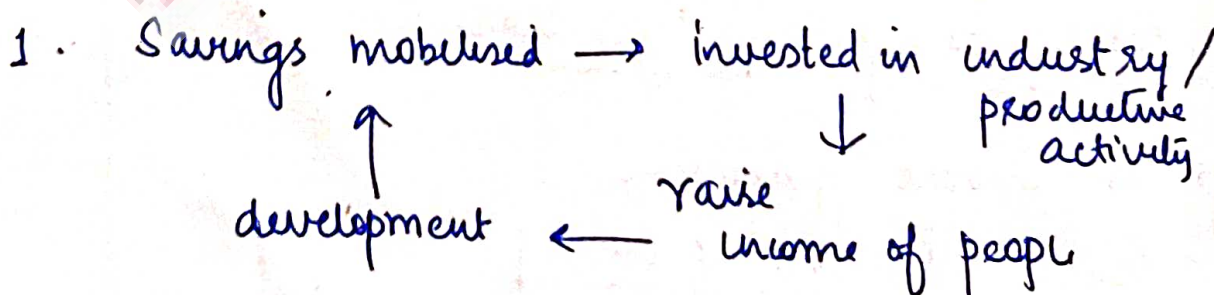 1. Savings mobilised → invested in industry /
productive
activity
↑ ↓
raise
development ← income of people